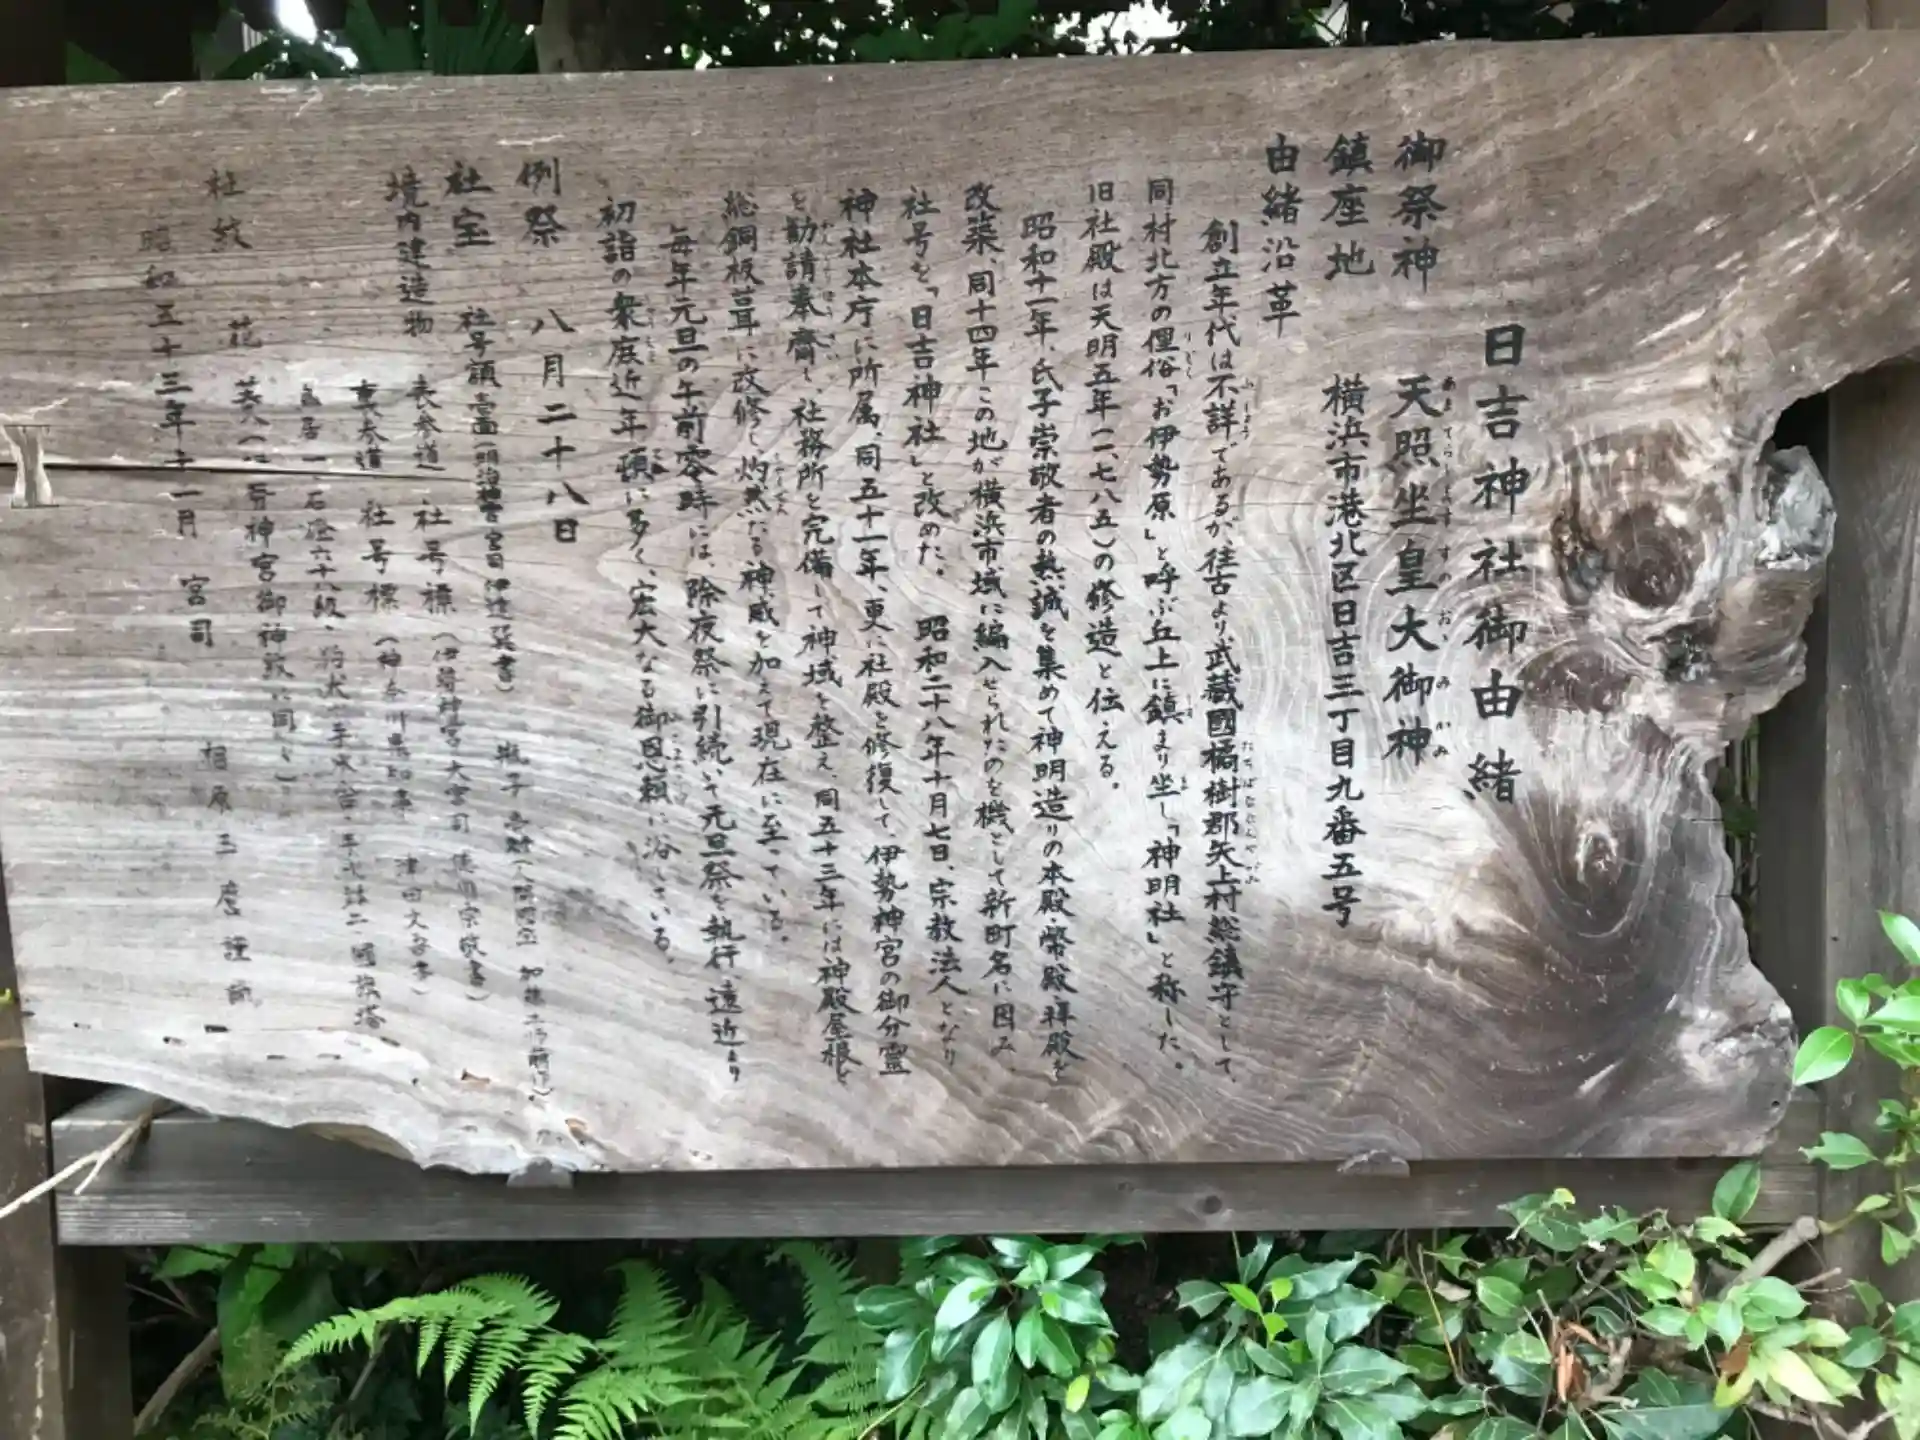 日吉神社御由緒
御祭神 天照坐皇大御神
あまてらしますすめおおみかみ
鎮座地 横浜市港北区日吉三丁目九番五号
由緒沿革
創立年代は不詳であるが往古より武蔵國橘樹郡矢上村総鎮守として、
同村北方の俚俗「お伊勢原」と呼ぶ丘上に鎮まり坐し「神明社」と称した。
旧社殿は天明五年(一、七八五)の修造と伝える。
昭和十一年、氏子崇敬者の熱誠を集めて神明造りの本殿・幣殿・拝殿を
改築、同十四年この地が横浜市域に編入せられたのを機として新町名に因み
社号を「日吉神社」と改めた。 昭和二十八年十月七日、宗教法人となり
神社本庁に所属、同五十一年、更に社殿を修復して、伊勢神宮の御分靈
を勧請奉齋し、社務所を完備して神域を整え、同五十三年には神殿屋根を
総銅板葺に改修し灼然たる神威を加えて現在に至っている。
毎年元旦の午前零時には、除夜祭に引続いて元旦祭を執行、遠近より
初詣の衆庶近年頓に多く、宏大なる御恩頼に浴している。
例祭 八月二十八日
社宝 社号額 壱面(明治神宮宮司 伊達巽書) 瓶子 壱対
境内建造物 表参道 社号標(伊勢神宮大宮司 徳川宗敬書)
裏参道 社号標(神奈川県知事 津田文吾書)
鳥居一・石燈六十八級・狛犬・手水台・
社紋 花菱(伊勢神宮御神紋に同じ)
昭和五十三年十一月 宮司 相原三麿 謹誌